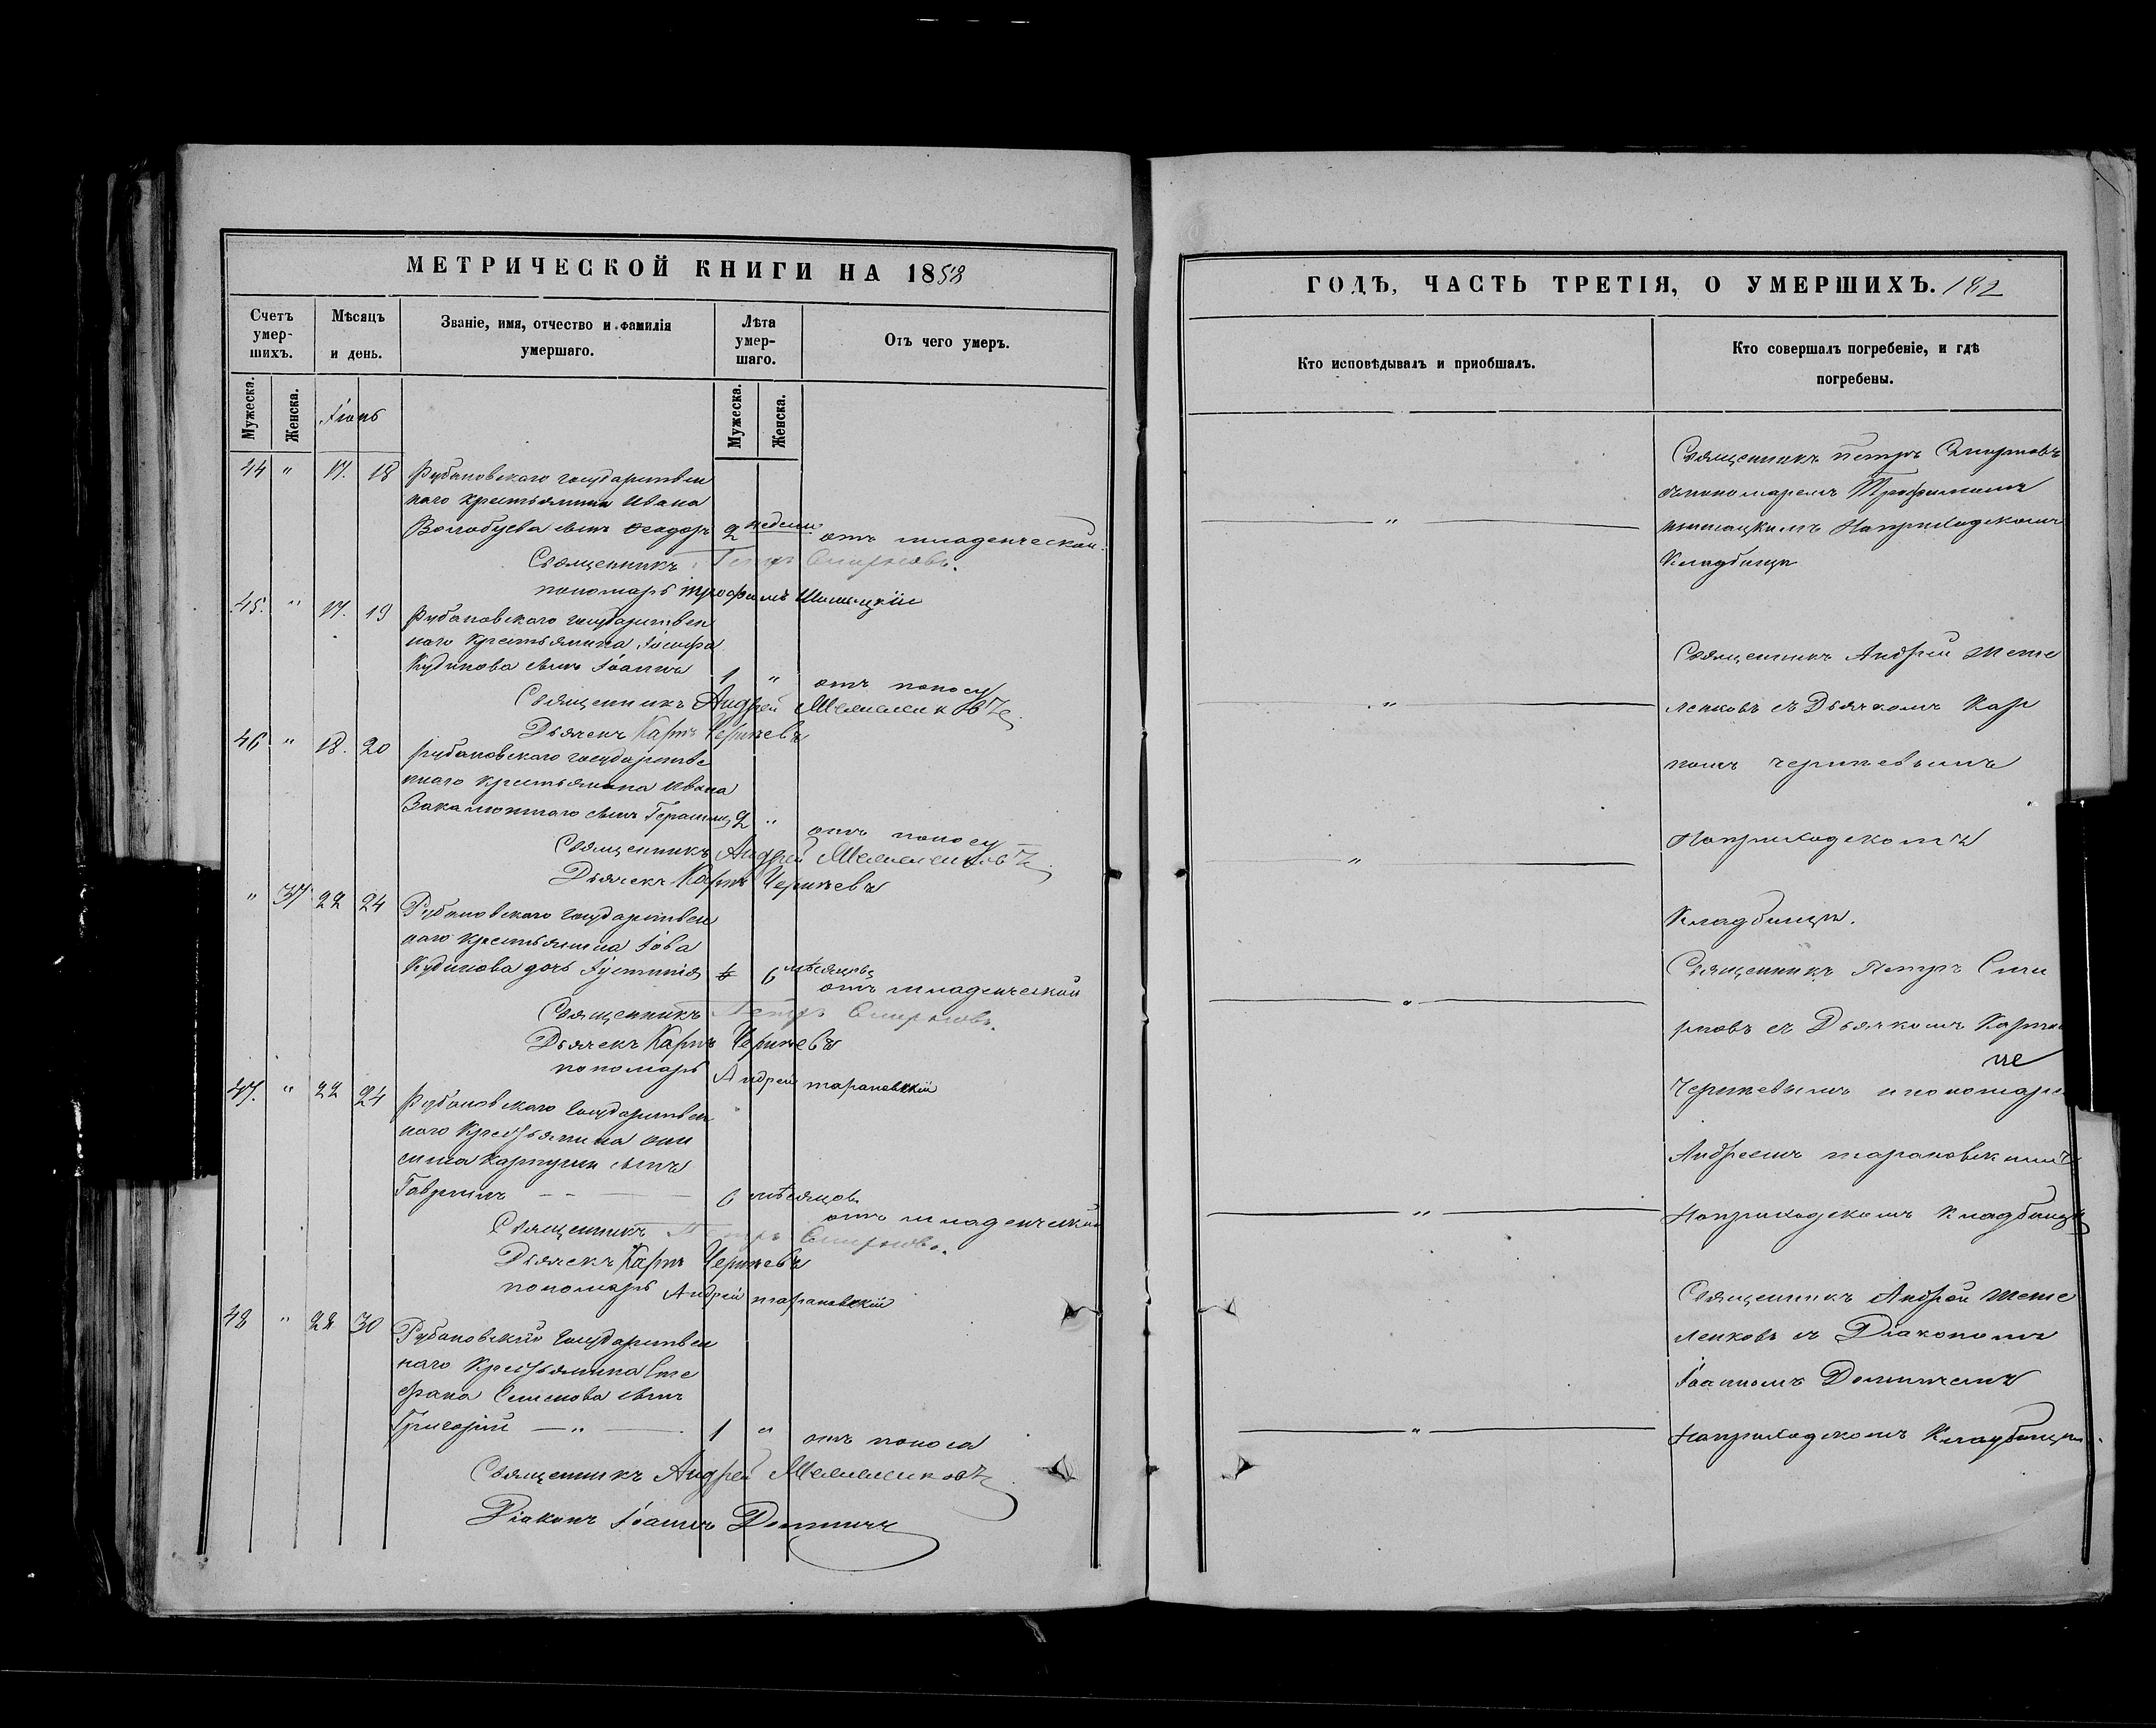 МЕТРИЧЕСКОЙ КНИГИ НА 1858
Счетъ умер-шихъ.
Мѣсяцъ и день.
Званіе, имя, отчество и фамилія умершаго.
Лѣта умер-шаго.
Отъ чего умеръ.
Мужеска.
Женска.
Іюнь
Мужеска.
Женска.
44 " 17. 18 Рубановскаго государствен
наго крестьянина Ивана
сынъ Ѳеодоръ 2 недели отъ младенческой
Священникъ Петръ Смирновъ.
пономарь Трофимъ
45. " 17. 19 Рубановскаго государствен
наго крестьянина Іосифа
Кудинова сынъ Іоаннъ 1 " отъ поносу
Священникъ Андрей
Дьячекъ Карпъ Черневъ
46 " 18. 20 Рубановскаго государстве
ннаго крестьянина Ивана
сынъ Герасимъ 2 " отъ поносу
Священникъ Андрей
Дьячекъ Карпъ Черневъ
" 37 22 24 Рубановскаго государствен
наго крестьянина Іова
Кудинова дочь Іустинія 6 мѣсяцовъ отъ младенческой
Священникъ Петръ Смирновъ.
Дьячекъ Карпъ Черневъ
пономарь Андрей Тарановскій
47. " 22 24 Рубановскаго Государствен
наго Крестьянина Они
сима сынъ
Гавріилъ 6 мѣсяцовъ отъ младенческой
Священникъ Петръ Смирновъ.
Дьячекъ Карпъ Черневъ
пономарь Андрей Тарановскій
48 " 28 30 Рубановскаго Государствен
наго Крестьянина Сте
фана Семенова сынъ
Григорій — " — 1 " отъ поноса
Священникъ Андрей
Діаконъ Іоаннъ
ГОДЪ, ЧАСТЬ ТРЕТІЯ, О УМЕРШИХЪ. 182
Кто исповѣдывалъ и приобшалъ.
Кто совершалъ погребеніе, и гдѣ погребены.
Священникъ Петръ Смирновъ
спономаремъ Трофимомъ
Наприходскомъ
Кладбищи
Священникъ Андрей
съ Дьячкомъ Кар
помъ Черневымъ
Наприходскомъ
Кладбищи.
Священникъ Петръ Сми
рновъ съ Дьячкомъ Карпом
Черневымъ ипономаре
Андреемъ Тарановскимъ
Наприходскомъ Кладбищи
Священникъ Андрей
съ Діакономъ
Іоанномъ
Наприходскомъ Кладбищи